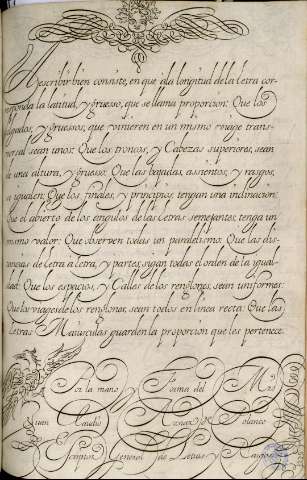 Escribir bien consiste, en que ala longitud de la letra cor-
responda la latitud, y gruesso, que se llama proporcion: Que los
delgados, y gruessos, que vinieren en un mismo viage trans-
versal sean unos: Que los troncos, y Cabezas superiores, sean
de una altura, y grueso: Que las bajadas, asientos, y rasgos,
se igualen: Que los finales, y principios, tengan una inclinacion:
Que el abierto de los angulos de las Letras semejantes, tenga un
mismo valor: Que observen todas un paralelismo: Que las dis-
tancias de Letra a Letra, y partes, sigan todas el orden de la igual-
dad: Que los espacios, y Calles de los renglones, sean uniformes:
Que los viages de los renglones, sean todos en linea recta: Que las
Letras Maiusculas guarden la proporcion que les pertenece.
Por la mano y Forma del Mro
Juan Claudio Aznar de Polanco
Escriptor General de Letras y Rasgos